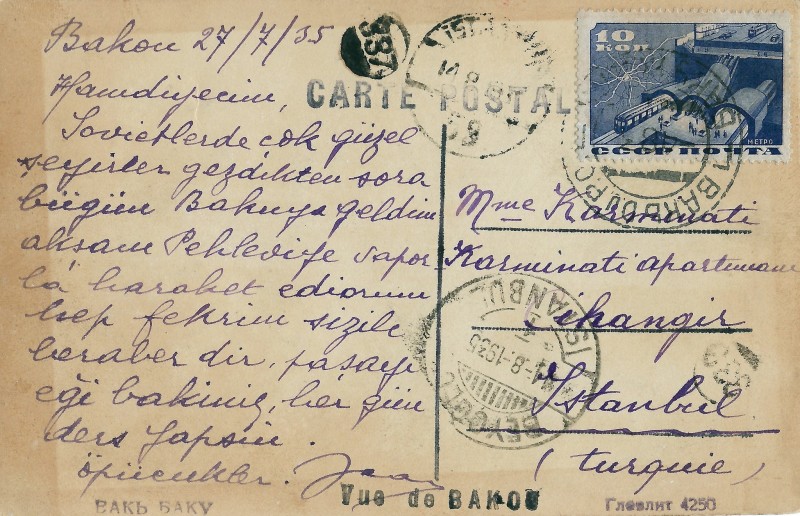 Bakou 27/7/35
Hamdiyecim,
Sovietlerde cok güzel
seyirler gezdikten sora
bügün Bakuya geldim
aksam Pehleviye vapor-
la haraket ediorum
hep fekrim sizile
beraber dir. pasayi
eği bakiniz, her gün
ders yapsin.
öpücukler.
387
CARTE POSTALE
10
КОП.
МЕТРО
СССР ПОЧТА
Mme Karminati
Karminati apartuman
Cihangir
Istanbul
(turquie)
ISTANBUL
-8-1935
BEYOĞLU
ВАКЬ БАКУ
Vue de BAKOU
Главлит 4250